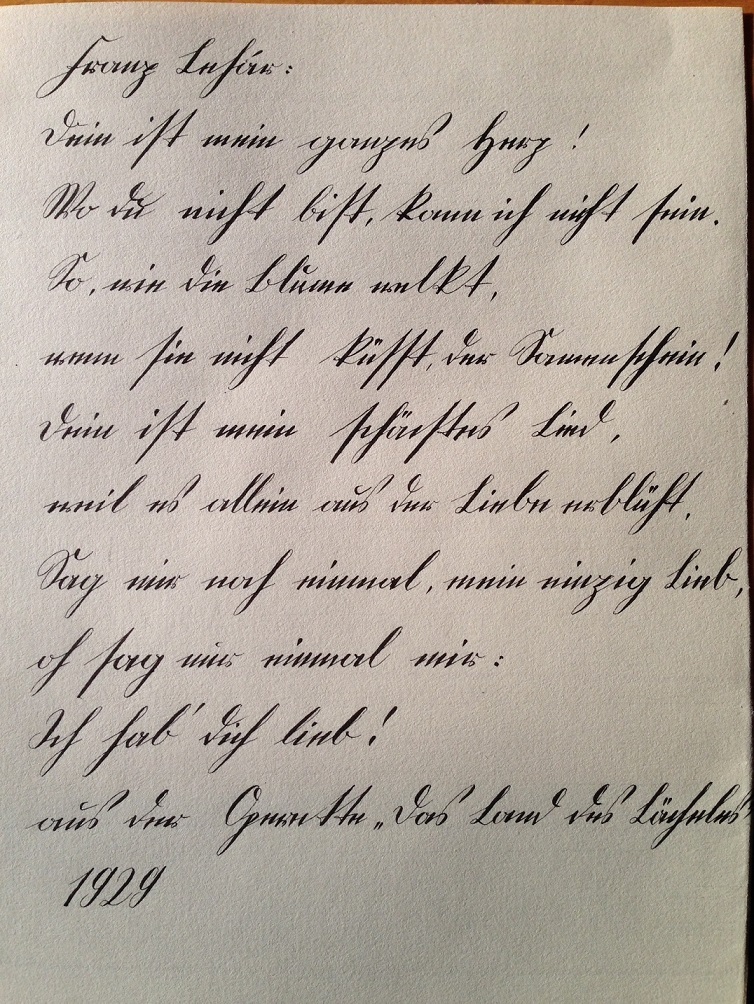 Franz Lehár:
Dein ist mein ganzes Herz!
Wo du nicht bist, kann ich nicht sein.
So, wie die Blume welkt,
wenn sie nicht küsst, der Sonnenschein!
Dein ist mein schönstes Lied,
weil es allein aus der Liebe erblüht.
Sag mir noch einmal, mein einzig Lieb,
oh sag nur einmal mir:
Ich hab' dich lieb!
aus der Operette „Das Land des Lächelns"
1929